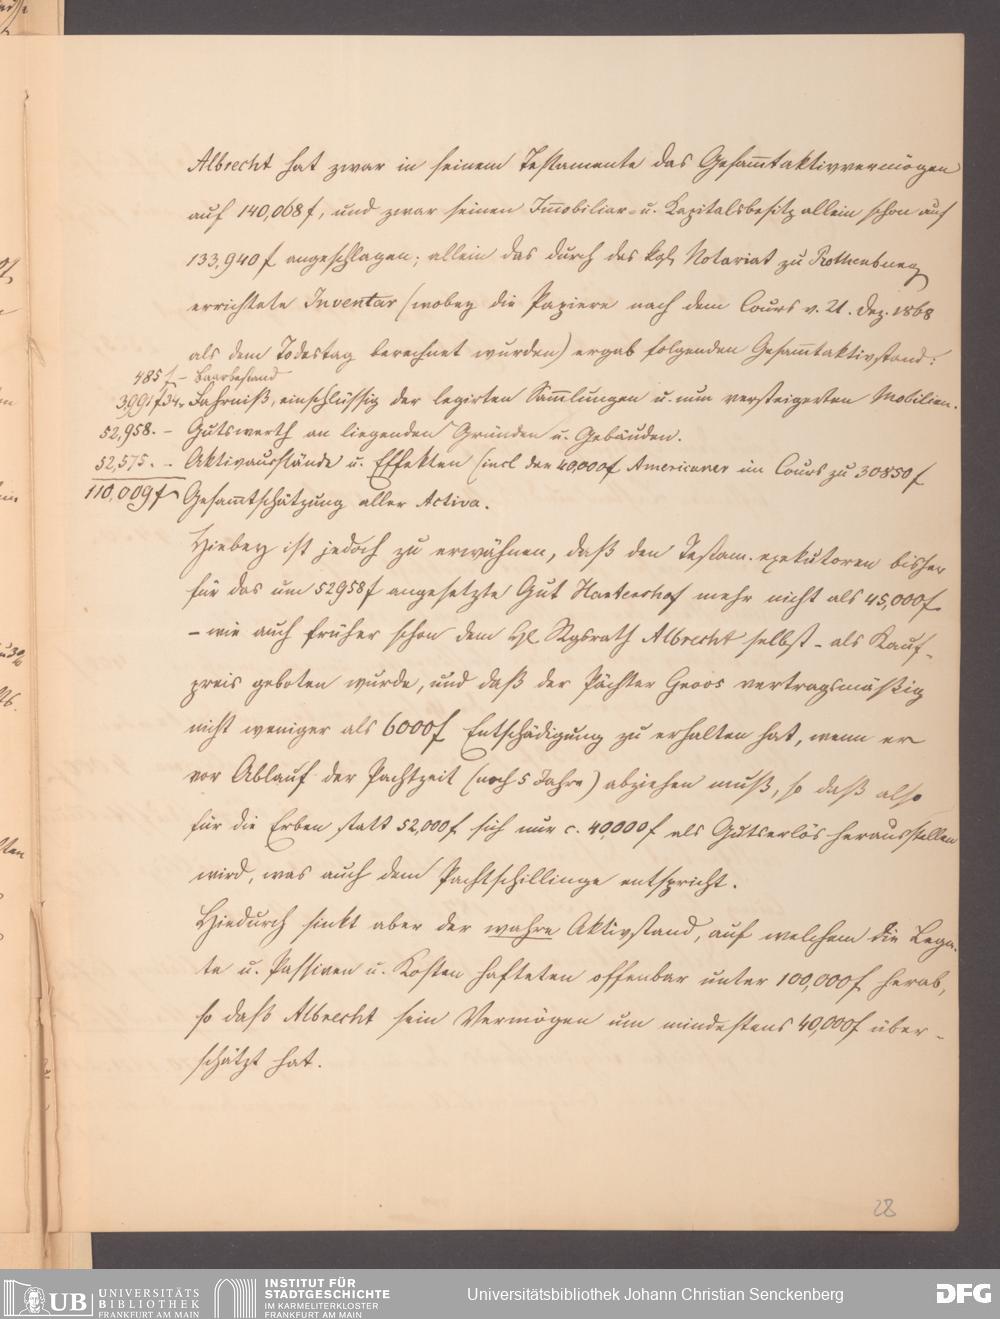 Albrecht hat zwar in seinem Testamente das Gesam̅taktivvermögen
auf 140,068 f, und zwar seinen Im̅obiliar- u. Kapitalsbesitz allein schon auf
133,940 f angeschlagen; allein das durch das kgl. Notariat zu Rothenburg
errichtete Inventar (wobey die Papiere nach dem Cours v. 21. Dez. 1868
als dem Todestag berechnet wurden) ergab folgenden Gesam̅taktivstand:
485 f – Baarbestand
3,991 f 34. Fahrniß, einschlüssig der legirten Sam̅lungen u. nun versteigerten Mobilien.
52,958. – Gutswerth an liegenden Gründen u. Gebäuden.
52,575. – Aktivausstände u. Effekten (incl der 40,000 f Americaner im Cours zu 30850 f
110,009 f Gesam̅tschätzung aller Activa.
Hiebey ist jedoch zu erwähnen, daß den Testam. exekutoren bisher
für das um 52958 f angesetzte Gut mehr nicht als 45,000 f
– wie auch früher schon dem Hl Rgsrath Albrecht selbst – als Kauf-
preis geboten wurde, und daß der Pächter Groos vertragsmäßig
nicht weniger als 6000 f Entschädigung zu erhalten hat, wenn er
vor Ablauf der Pachtzeit (noch 5 Jahre) abziehen muß, so daß also
für die Erben statt 52,000 f sich nur c. 40,000 f als Gutserlös herausstellen
wird, was auch dem Pachtschillinge entspricht.
Hiedurch sinkt aber der wahre Aktivstand, auf welchem die Lega-
te u. Passiven u. Kosten hafteten offenbar unter 100,000 f herab,
so daß Albrecht sein Vermögen um mindestens 40,000 f über-
schätzt hat.
28
UB UNIVERSITÄTS
BIBLIOTHEK
FRANKFURT AM MAIN
INSTITUT FÜR
STADTGESCHICHTE
IM KARMELITERKLOSTER
FRANKFURT AM MAIN
Universitätsbibliothek Johann Christian Senckenberg
DFG